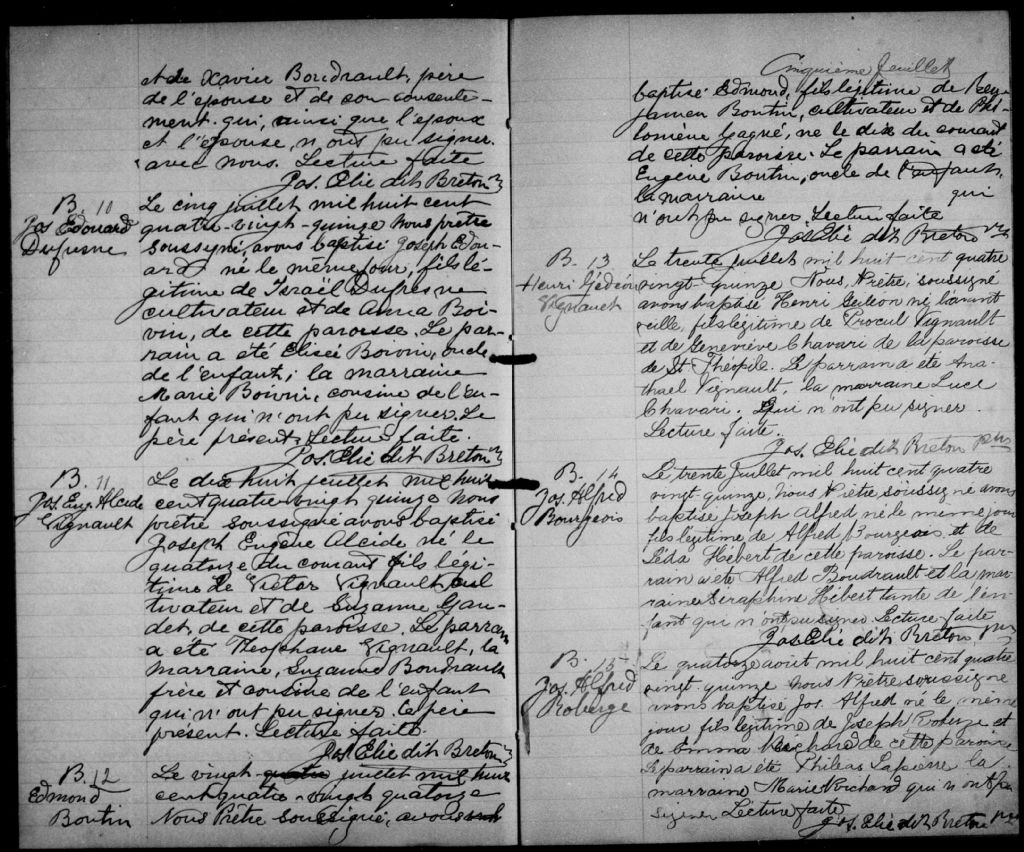 et de Xavier Boudrault, père
de l'epouse et de son consente-
ment. qui, ainsi que l'epoux
et l'épouse, n'ont pu signer
avec nous. Lecture faite
Jos. Elie dit Breton
B. 10
Jos Edouard
Dufresne
Le cinq juillet mil huit cent
quatre-vingt-quinze Nous prêtre
soussigné, avons baptisé Joseph Edou-
ard né le même jour, fils lé-
gitime de Israël Dufresne
cultivateur et de Anna Boi-
vin, de cette paroisse. Le par-
rain a été Elisée Boivin, oncle
de l'enfant; la marraine
Marie Boivin, cousine de l'en-
fant qui n'ont pu signer. Le
père présent. Lecture faite.
Jos. Elie dit Breton
B. 11
Jos. Eug. Alcide
Vignault
Le dix huit juillet mil huit
cent quatre vingt quinze nous
prêtre soussigné avons baptisé
Joseph Eugène Alcide né le
quatorze du courant fils légi-
time de Victor Vignault, cul
tivateur et de Suzanne Gau-
det, de cette paroisse. Le parrain
a été Théophane Vignault, la
marraine, Suzanne Boudrault
frère et cousine de l'enfant
qui n'ont pu signer. Le père
présent. Lecture faite.
Jos Elie dit Breton
B. 12
Edmond
Boutin
Le vingt juillet mil huit
cent quatre-vingt quatorze
Nous Prêtre soussigné, avons
Cinquième feuillet
baptisé Edmond, fils légitime de Ben-
jamen Boutin, cultivateur et de Phi-
lomène Gagné, ne le dix du courant
de cette paroisse. Le parrain a été
Eugène Boutin, oncle de l'enfant,
la marraine qui
n'ont pu signer. Lecture faite
Jos Elie dit Breton
B. 13
Henri Gédéon
Vignault
Le trente juillet mil huit cent quatre
vingt-quinze Nous, Prêtre, soussigné
avons baptisé Henri Gedeon né l'avant
veille, fils légitime de Procul Vignault
et de Geneviève Chavari de la paroisse
de St Théopile. Le parrain a été Ana-
thael Vignault, la marraine Luce
Chavari. Qui n'ont pu signer.
Lecture faite.
Jos. Elie dit Breton ptre
B. 14
Jos. Alfred
Bourgeois
Le trente Juillet mil huit cent quatre
vingt-quinze, Nous Prêtre soussigné avons
baptisé Joseph Alfred né le même jour
fils légitime de Alfred Bourgeois et de
Léda Hébert de cette paroisse. Le par-
rain a été Alfred Boudrault et la mar-
raine Seraphine Hébert tante de l'en-
fant qui n'ont pu signer Lecture faite
Jos Elie dit Breton ptre
B. 15
Jos. Alfred
Roberge
Le quatorze août mil huit cent quatre
vingt-quinze nous Prêtre soussigné
avons baptisé Jos. Alfred né le même
jour fils légitime de Joseph Roberge et
de Emma de cette paroisse
Le parrain a été Philéas Lapierre la
marraine Marie qui n'ont pu
signer Lecture faite
Jos. Elie dit Breton ptre